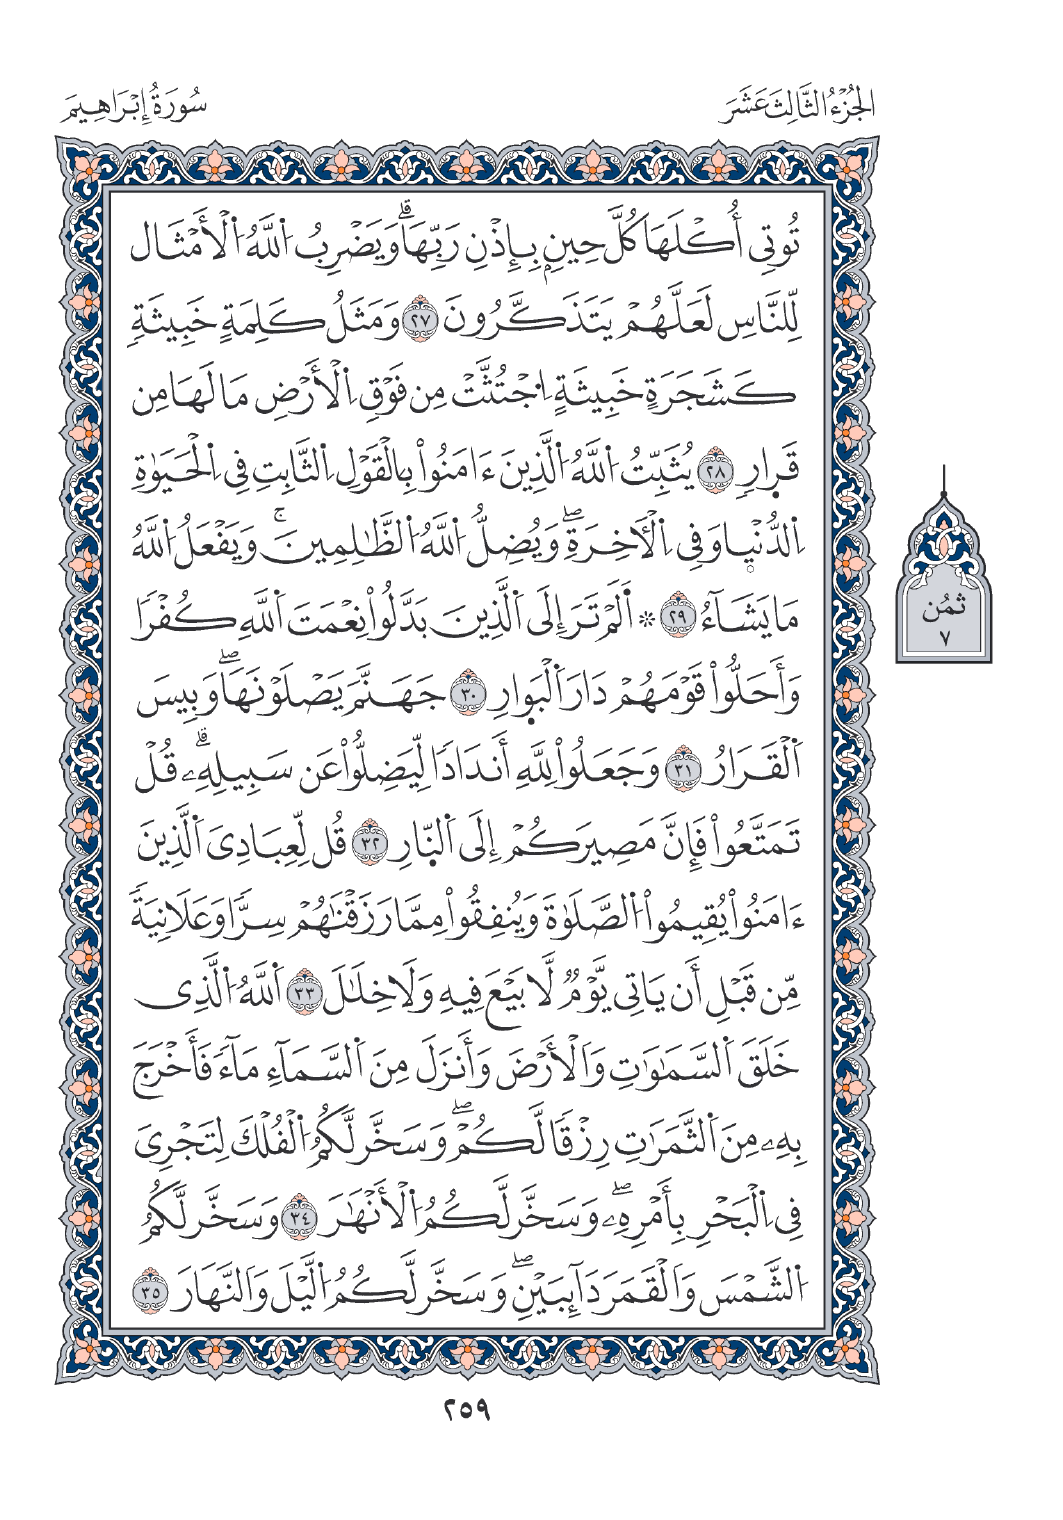 الجُزْءُ الثَّالِثَ عَشَرَ
سُورَةُ إِبْرَاهِيمَ
تُوتِي أُكْلَهَا كُلَّ حِينٍۢ بِإِذْنِ رَبِّهَاۗ وَيَضْرِبُ اُ۬للَّهُ اُ۬لْأَمْثَالَ
لِلنَّاسِ لَعَلَّهُمْ يَتَذَكَّرُونَ ٢٧ وَمَثَلُ كَلِمَةٍ خَبِيثَةٖ
كَشَجَرَةٍ خَبِيثَةٍ اِ۟جْتُثَّتْ مِن فَوْقِ اِ۬لْأَرْضِ مَا لَهَا مِن
قَرارٖ ٢٨ يُثَبِّتُ اُ۬للَّهُ اُ۬لَّذِينَ ءَامَنُواْ بِالْقَوْلِ اِ۬لثَّابِتِ فِي اِ۬لْحَيَوٰةِ
اِ۬لدُّنْيا وَفِي اِ۬لْأٓخِرَةِۖ وَيُضِلُّ اُ۬للَّهُ اُ۬لظَّٰلِمِينَۚ وَيَفْعَلُ اُ۬للَّهُ
مَا يَشَآءُ ٢٩ ۞ أَلَمْ تَرَ إِلَى اَ۬لَّذِينَ بَدَّلُواْ نِعْمَتَ اَ۬للَّهِ كُفْرٗا
وَأَحَلُّواْ قَوْمَهُمْ دَارَ اَ۬لْبَوارِ ٣٠ جَهَنَّمَ يَصْلَوْنَهَاۖ وَبِيسَ
اَ۬لْقَرَارُ ٣١ وَجَعَلُواْ لِلهِ أَندَادٗا لِّيَضِلُّواْ عَن سَبِيلِهِۦۗ قُلْ
تَمَتَّعُواْ فَإِنَّ مَصِيرَكُمْ إِلَى اَ۬لنّارِ ٣٢ قُل لِّعِبَادِيَ اَ۬لَّذِينَ
ءَامَنُواْ يُقِيمُواْ اُ۬لصَّلَوٰةَ وَيُنفِقُواْ مِمَّا رَزَقْنَٰهُمْ سِرّٗا وَعَلَانِيَةٗ
مِّن قَبْلِ أَن يَاتِيَ يَوْمٞ لَّا بَيْعَ فِيهِ وَلَا خِلَٰلَ ٣٣ اَ۬للَّهُ اُ۬لَّذِي
خَلَقَ اَ۬لسَّمَٰوَٰتِ وَاَ۬لْأَرْضَ وَأَنزَلَ مِنَ اَ۬لسَّمَآءِ مَآءٗ فَأَخْرَجَ
بِهِۦ مِنَ اَ۬لثَّمَرَٰتِ رِزْقٗا لَّكُمْۖ وَسَخَّرَ لَّكُمُ اُ۬لْفُلْكَ لِتَجْرِيَ
فِي اِ۬لْبَحْرِ بِأَمْرِهِۦۖ وَسَخَّرَ لَّكُمُ اُ۬لْأَنْهَٰرَ ٣٤ وَسَخَّرَ لَّكُمُ
اُ۬لشَّمْسَ وَاَ۬لْقَمَرَ دَآئِبَيْنِۖ وَسَخَّرَ لَّكُمُ اُ۬لَّيْلَ وَاَ۬لنَّهَارَ ٣٥
ثمُن
٧
٢٥٩